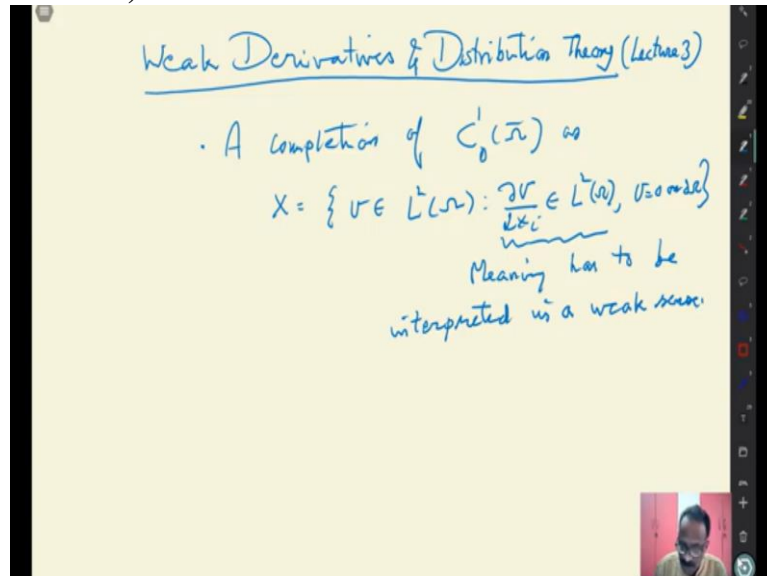 Weak Derivatives & Distribution Theory (Lecture 3)
· A completion of C¹₀(Ω̄) as
X = { v ∈ L²(Ω) : ∂v/∂xᵢ ∈ L²(Ω), v=0 on ∂Ω}
Meaning has to be
interpreted in a weak sense.